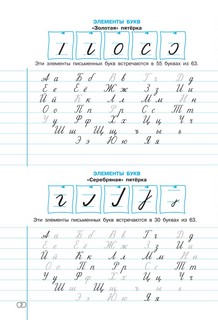 ЭЛЕМЕНТЫ БУКВ
«Золотая» пятёрка
Эти элементы письменных букв встречаются в 55 буквах из 63.
А а Б б В в Г г Д д
Е е Ё ё Ж ж З з И и
Й й К к Л л М м Н н
О о П п Р р С с Т т
У у Ф ф Х х Ц ц Ч ч
Ш ш Щ щ ъ ы ь
Э э Ю ю Я я
ЭЛЕМЕНТЫ БУКВ
«Серебряная» пятёрка
Эти элементы письменных букв встречаются в 30 буквах из 63.
А а Б б В в Г г Д д
Е е Ё ё Ж ж З з И и
Й й К к Л л М м Н н
О о П п Р р С с Т т
У у Ф ф Х х Ц ц Ч ч
Ш ш Щ щ ъ ы ь
Э э Ю ю Я я